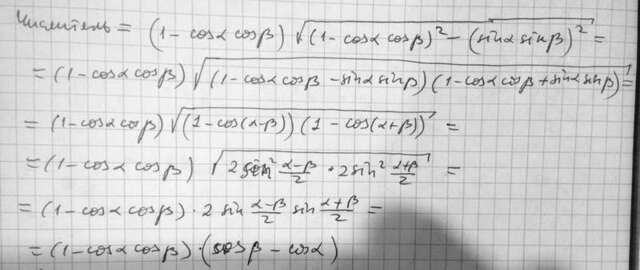 Числитель = (1 - cosα cosβ) √((1 - cosα cosβ)² - (sinα sinβ)²) =
= (1 - cosα cosβ) √((1 - cosα cosβ - sinα sinβ) (1 - cosα cosβ + sinα sinβ)) =
= (1 - cosα cosβ) √((1 - cos(α-β)) (1 - cos(α+β))) =
= (1 - cosα cosβ) √(2 sin² (α-β)/2 · 2 sin² (α+β)/2) =
= (1 - cosα cosβ) · 2 sin (α-β)/2 sin (α+β)/2 =
= (1 - cosα cosβ) · (cosβ - cosα)